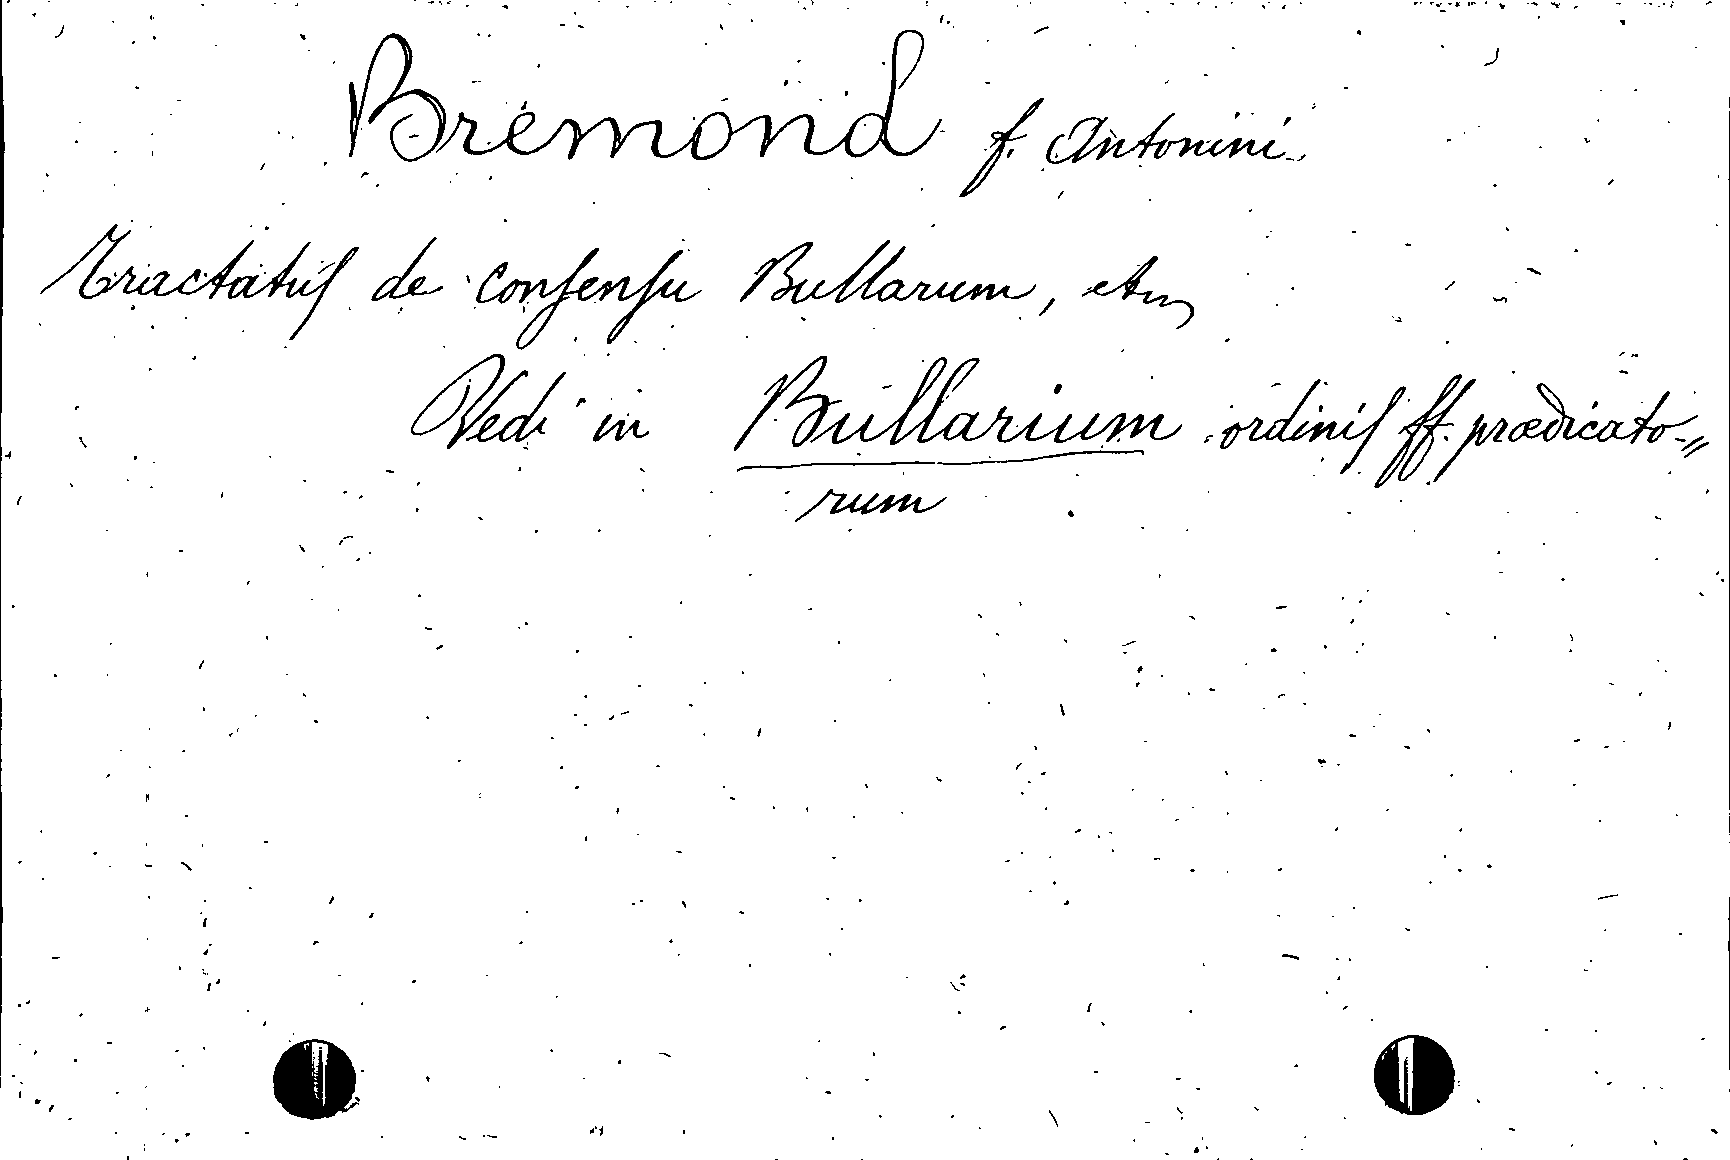 Bremond f. Antonini
Tractatuſ de conſenſu Bullarum, etc
Vedi in Bullarium ordiniſ ff. prædicato-
rum